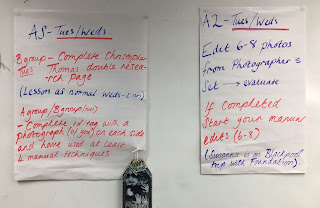 AS - Tues/Weds.
B group - Complete Christopher
Tues Thomas double resea-
rch page
(Lesson as normal Weds-
A group/B group
- Complete id tag with a
photograph (of you) on each side
and have used at least
4 manual techniques
A2 - Tues/Weds.
Edit 6-8 photos
from Photographer 3
Set → evaluate
If completed
Start your manual
edits (6-8)
is on Blackpool
trip with Foundation)